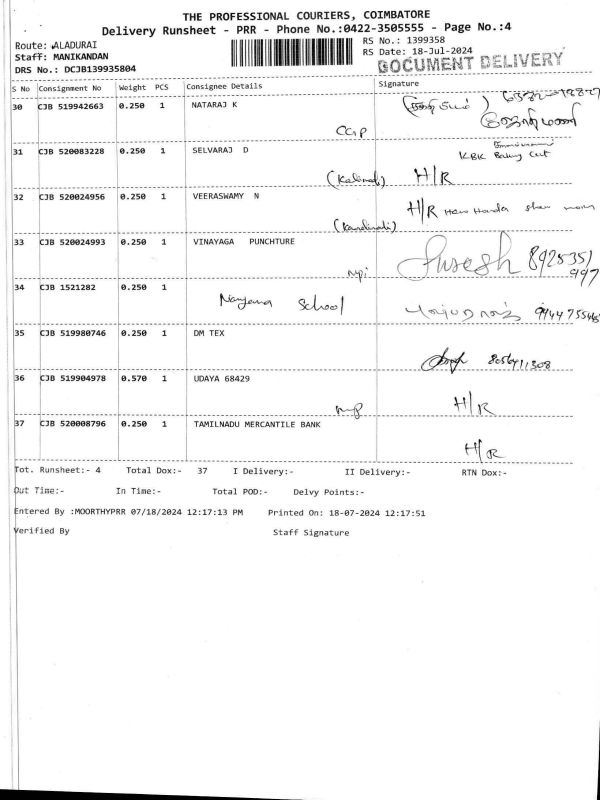 THE PROFESSIONAL COURIERS, COIMBATORE
Delivery Runsheet - PRR - Phone No.:0422-3505555 - Page No.:4
Route: ALADURAI
RS No.: 1399358
Staff: MANIKANDAN
RS Date: 18-Jul-2024
DRS No.: DCJB139935804
DOCUMENT DELIVERY
S No Consignment No Weight PCS Consignee Details Signature
30 CJB 519942663 0.250 1 NATARAJ K
31 CJB 520083228 0.250 1 SELVARAJ D
KBK
H/R
32 CJB 520024956 0.250 1 VEERASWAMY N
H/R
33 CJB 520024993 0.250 1 VINAYAGA PUNCHTURE
Suresh 8925351
997
34 CJB 1521282 0.250 1
School
35 CJB 519980746 0.250 1 DM TEX
36 CJB 519904978 0.570 1 UDAYA 68429
H/R
37 CJB 520008796 0.250 1 TAMILNADU MERCANTILE BANK
H/R
Tot. Runsheet:- 4 Total Dox:- 37 I Delivery:- II Delivery:- RTN Dox:-
Out Time:- In Time:- Total POD:- Delvy Points:-
Entered By :MOORTHYPRR 07/18/2024 12:17:13 PM Printed On: 18-07-2024 12:17:51
Verified By Staff Signature